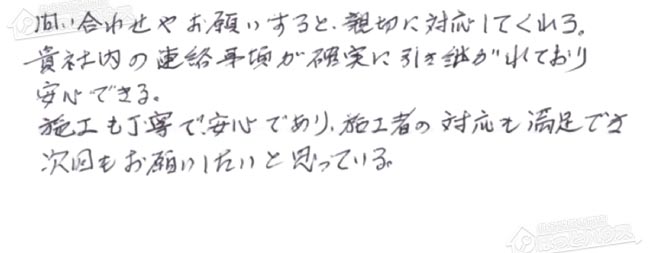 問い合わせやお願いすると、親切に対応してくれる。
貴社内の連絡事項が確実に引き継がれており
安心できる。
施工も丁寧で、安心であり、施工者の対応も満足でき
次回もお願いしたいと思っている。